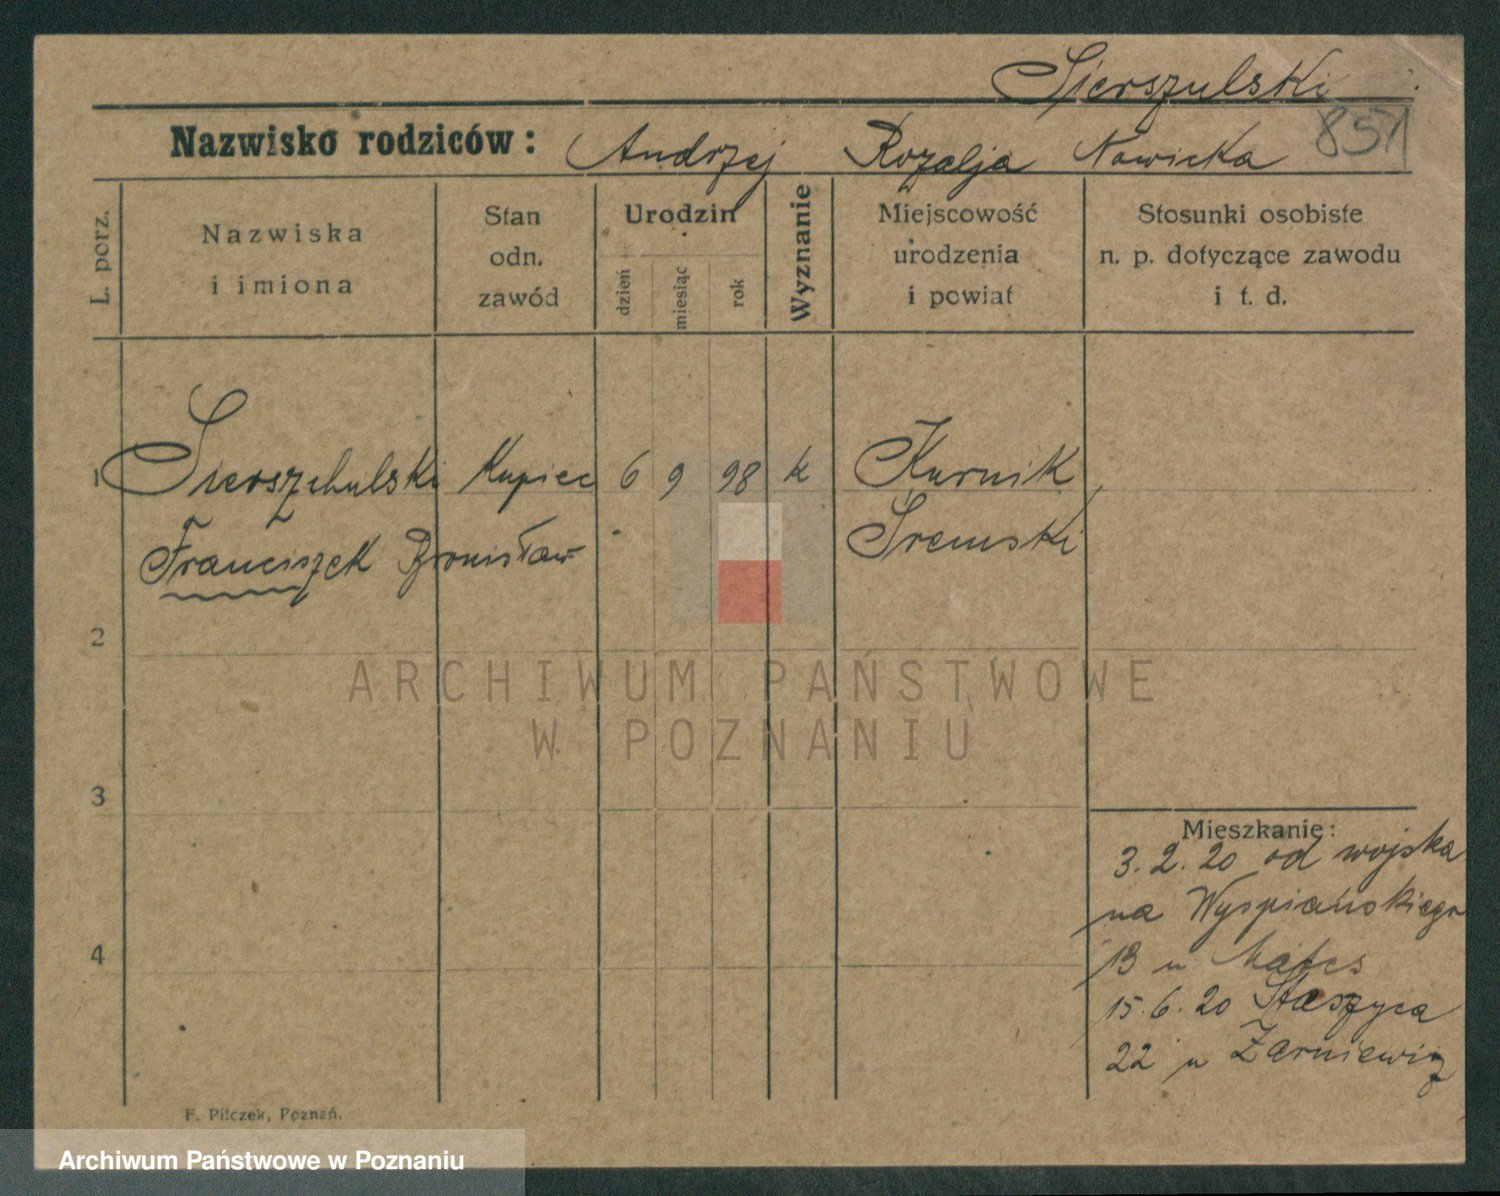 Sierszulski
Nazwisko rodziców: Andrzej Rozalja Nowicka 851
L. porz.
Nazwiska
i imiona
Stan
odn.
zawód
Urodzin
dzień
miesiąc
rok
Wyznanie
Miejscowość
urodzenia
i powiat
Stosunki osobiste
n. p. dotyczące zawodu
i t. d.
1 Sierszchulski Kupiec 6 9 98 k Kurnik
Franciszek Bronisław Śremski
2
3
4
Mieszkanie:
3. 2. 20 od wojska
na Wyspiańskiego
13 u
15. 6. 20 Staszyca
22 u Żarniewicz
F. Pilczek, Poznań.
ARCHIWUM PAŃSTWOWE
W POZNANIU
Archiwum Państwowe w Poznaniu